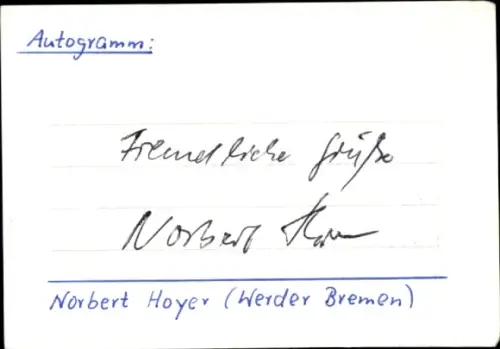 Autogramm:
Freundliche Grüße
Norbert Hoyer
Norbert Hoyer (Werder Bremen)